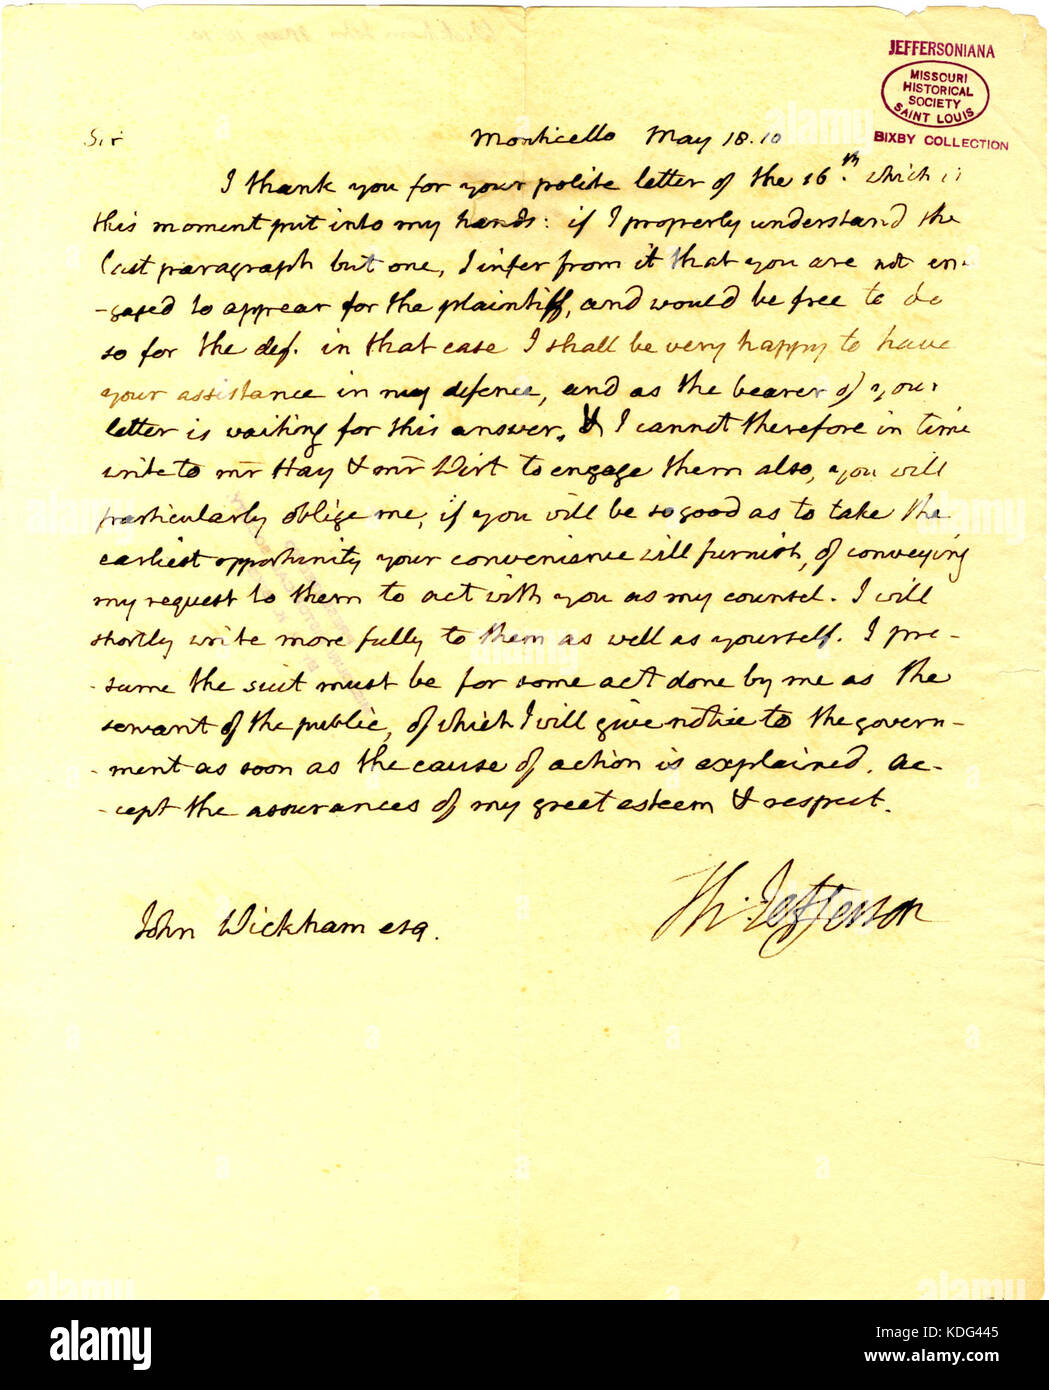 JEFFERSONIANA
MISSOURI
HISTORICAL
SOCIETY
SAINT LOUIS
BIXBY COLLECTION
Sir Monticello May 18. 10
I thank you for your polite letter of the 16th. which is
this moment put into my hands: if I properly understand the
last paragraph but one, I infer from it that you are not en-
-gaged to appear for the plaintiff, and would be free to do
so for the def. in that case I shall be very happy to have
your assistance in my defence, and as the bearer of your
letter is waiting for this answer, & I cannot therefore in time
write to mr Hay & mr Wirt to engage them also, you will
particularly oblige me, if you will be so good as to take the
earliest opportunity your convenience will furnish, of conveying
my request to them to act with you as my counsel. I will
shortly write more fully to them as well as yourself. I pre-
-sume the suit must be for some act done by me as the
servant of the public, of which I will give notice to the govern-
-ment as soon as the cause of action is explained. ac-
-cept the assurances of my great esteem & respect.
Th: Jefferson
John Wickham esq.
alamy
Image ID: KDG445
www.alamy.com